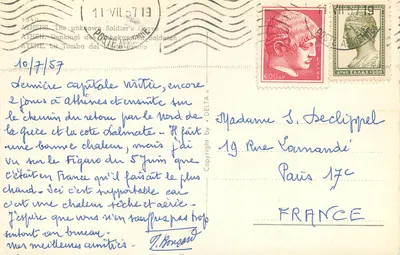 11.VII.57 19
ATHEN. The unknown Soldier's
ATHEN. Denkmal des unbekannten Soldaten
ATENE. La Tomba del Milite Ignoto
10/7/57
Dernière capitale visitée, encore
2 jours à Athènes et ensuite sur
le chemin du retour par le Nord de
la Grèce et la côte Dalmate. Il fait
une bonne chaleur, mais j'ai
vu sur le Figaro du 5 Juin que
c'était en France qu'il faisait le plus
chaud. Ici c'est supportable car
c'est une chaleur sèche et aérée.
J'espère que vous n'en souffrez pas trop
surtout au bureau.
mes meilleures amitiés.
Copyright by "DELTA"
600
VII.57 19
Madame S. Declippel
19 Rue Lamandé
Paris 17c
FRANCE